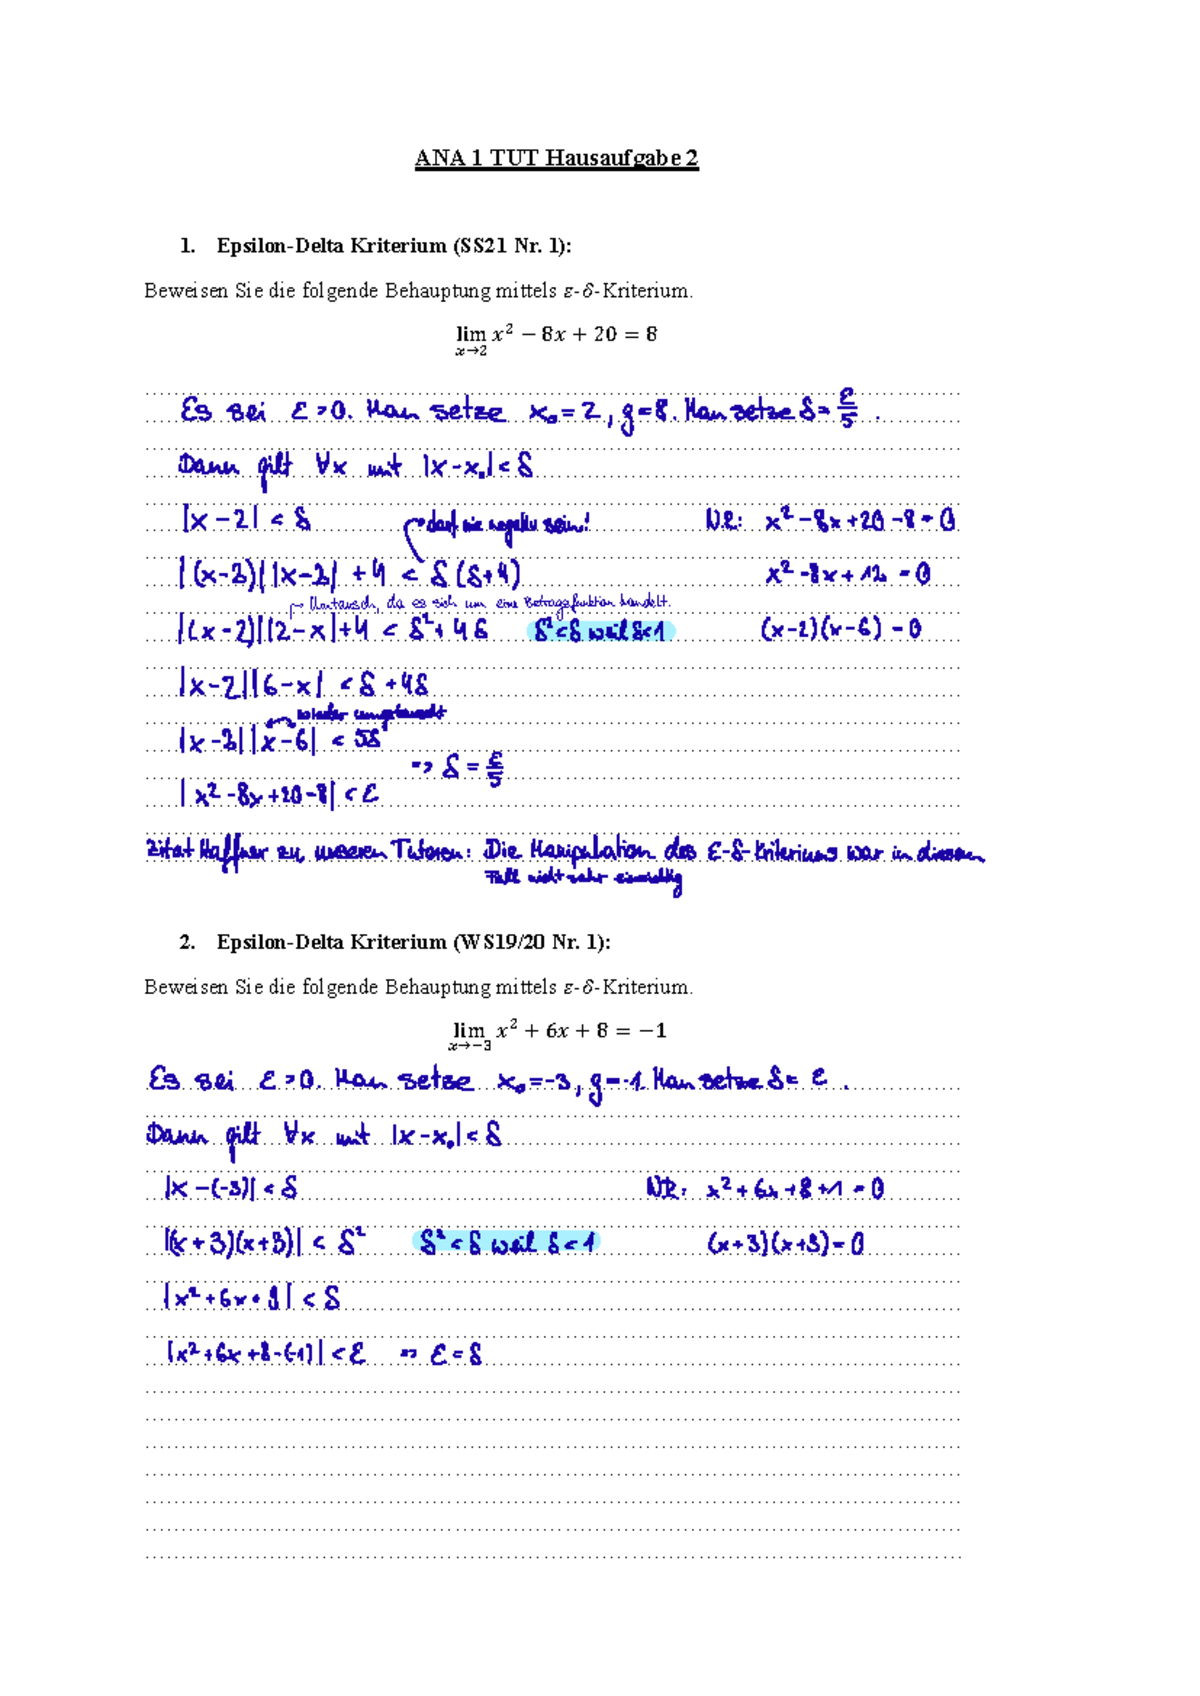 ANA 1 TUT Hausaufgabe 2
1. Epsilon-Delta Kriterium (SS21 Nr. 1):
Beweisen Sie die folgende Behauptung mittels ε-δ-Kriterium.
lim x→2 x² − 8x + 20 = 8
Es sei ε > 0. Man setze x₀ = 2, g = 8. Man setze δ = ε/5.
Dann gilt ∀x mit |x-x₀| < δ
|x-2| < δ
→ darf nie negativ sein!
NR: x² - 8x + 20 - 8 = 0
|(x-2)| |x-2| + 4 < δ(δ+4)
x² - 8x + 12 = 0
→ Umtausch, da es sich um eine Betragsfunktion handelt.
|(x-2)| |2-x| + 4 < δ² + 4δ
δ² < δ weil δ < 1
(x-2)(x-6) = 0
|x-2| |6-x| < δ + 4δ
wieder umgetauscht
|x-2| |x-6| < 5δ
=> δ = ε/5
|x² - 8x + 20 - 8| < ε
Zitat Haffner zu unseren Tutoren: Die Manipulation des ε-δ-Kriteriums war in diesem
Fall nicht sehr
2. Epsilon-Delta Kriterium (WS19/20 Nr. 1):
Beweisen Sie die folgende Behauptung mittels ε-δ-Kriterium.
lim x→−3 x² + 6x + 8 = −1
Es sei ε > 0. Man setze x₀ = -3, g = -1. Man setze δ = ε.
Dann gilt ∀x mit |x-x₀| < δ
|x-(-3)| < δ
NR: x² + 6x + 8 + 1 = 0
|(x+3)(x+3)| < δ²
δ² < δ weil δ < 1
(x+3)(x+3) = 0
|x² + 6x + 9| < δ
|x² + 6x + 8 - (-1)| < ε => ε = δ